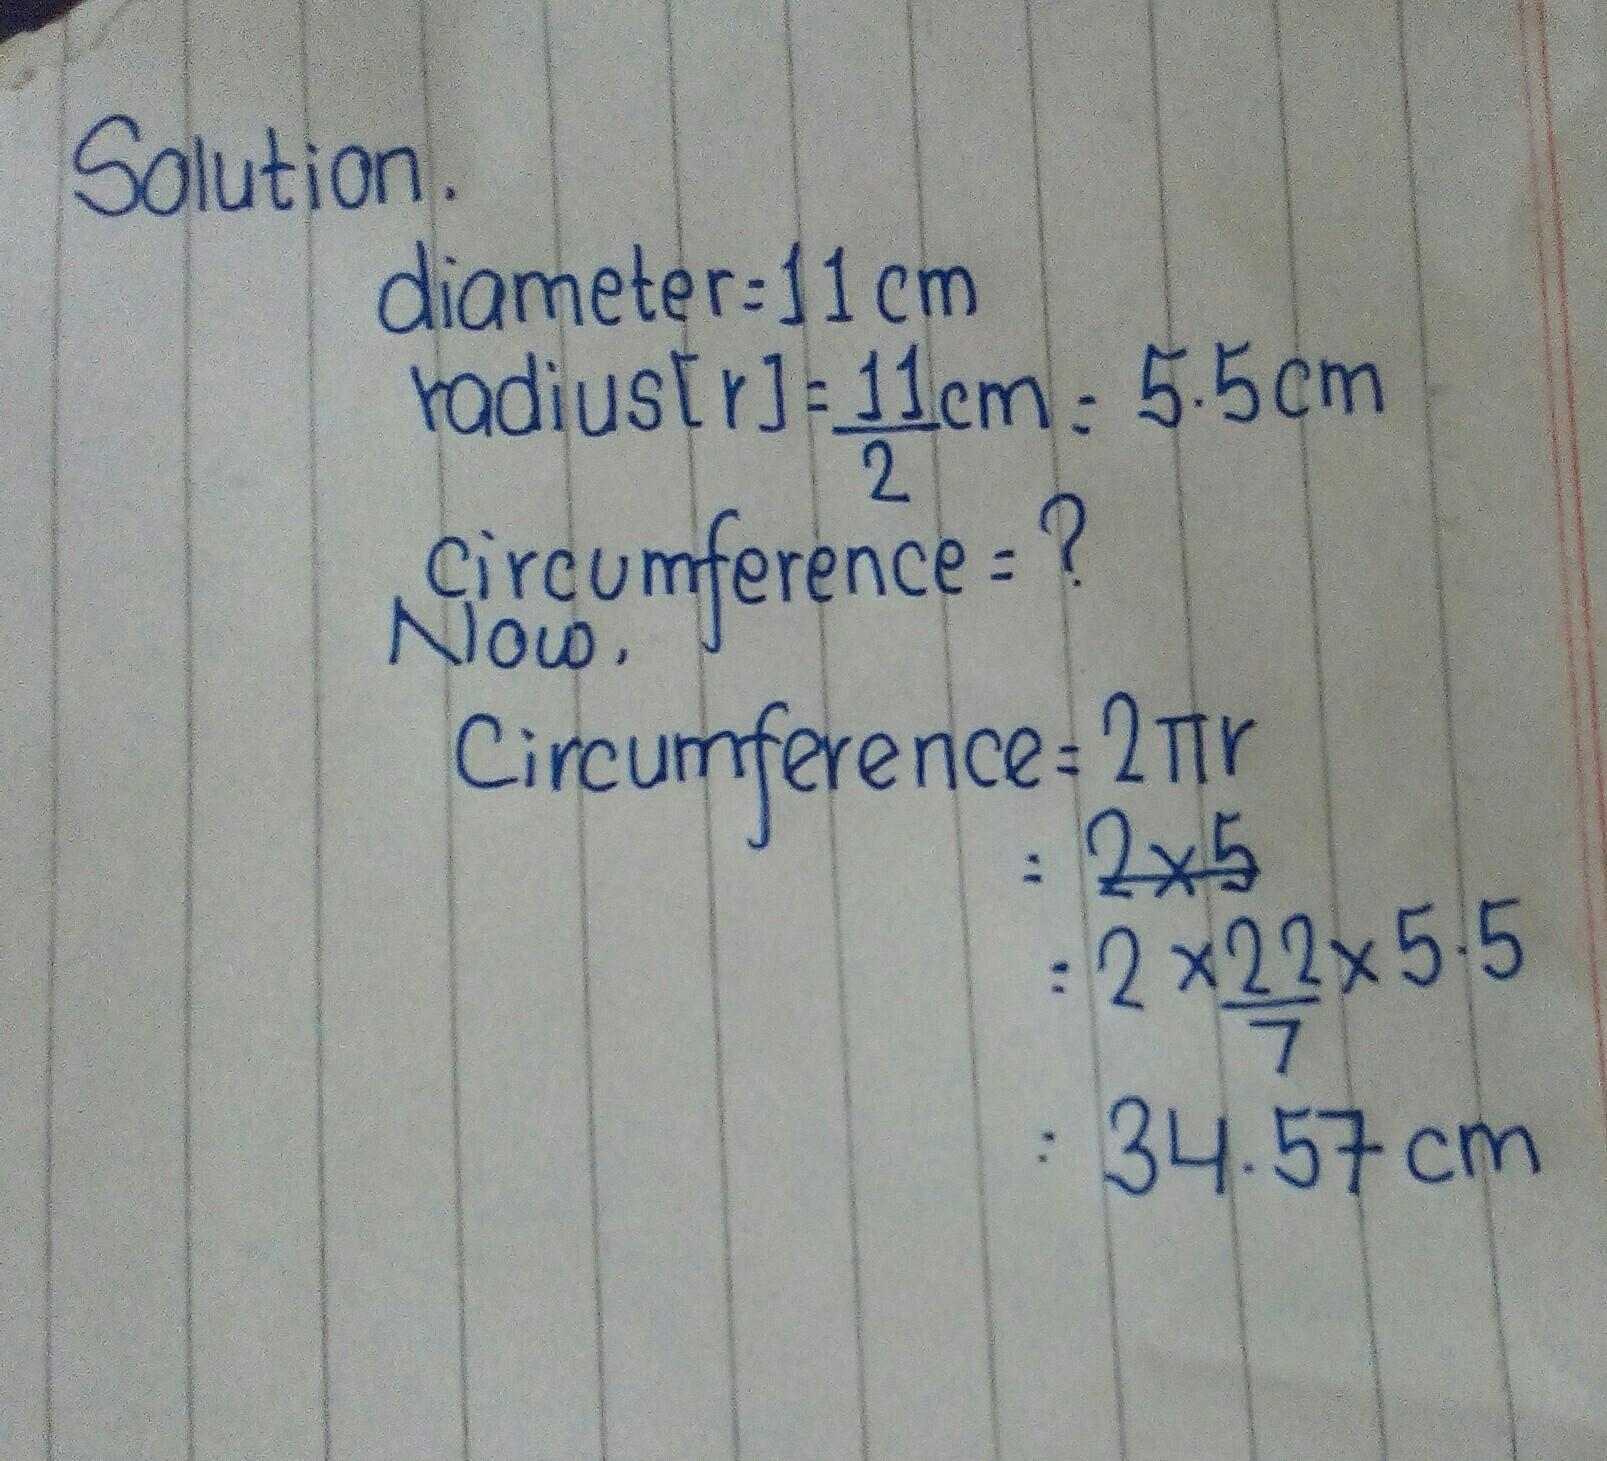 Solution.
diameter=11cm
radius[r]=11/2cm=5.5cm
circumference=?
Now,
Circumference=2πr
=2×5
=2×22/7×5.5
=34.57cm